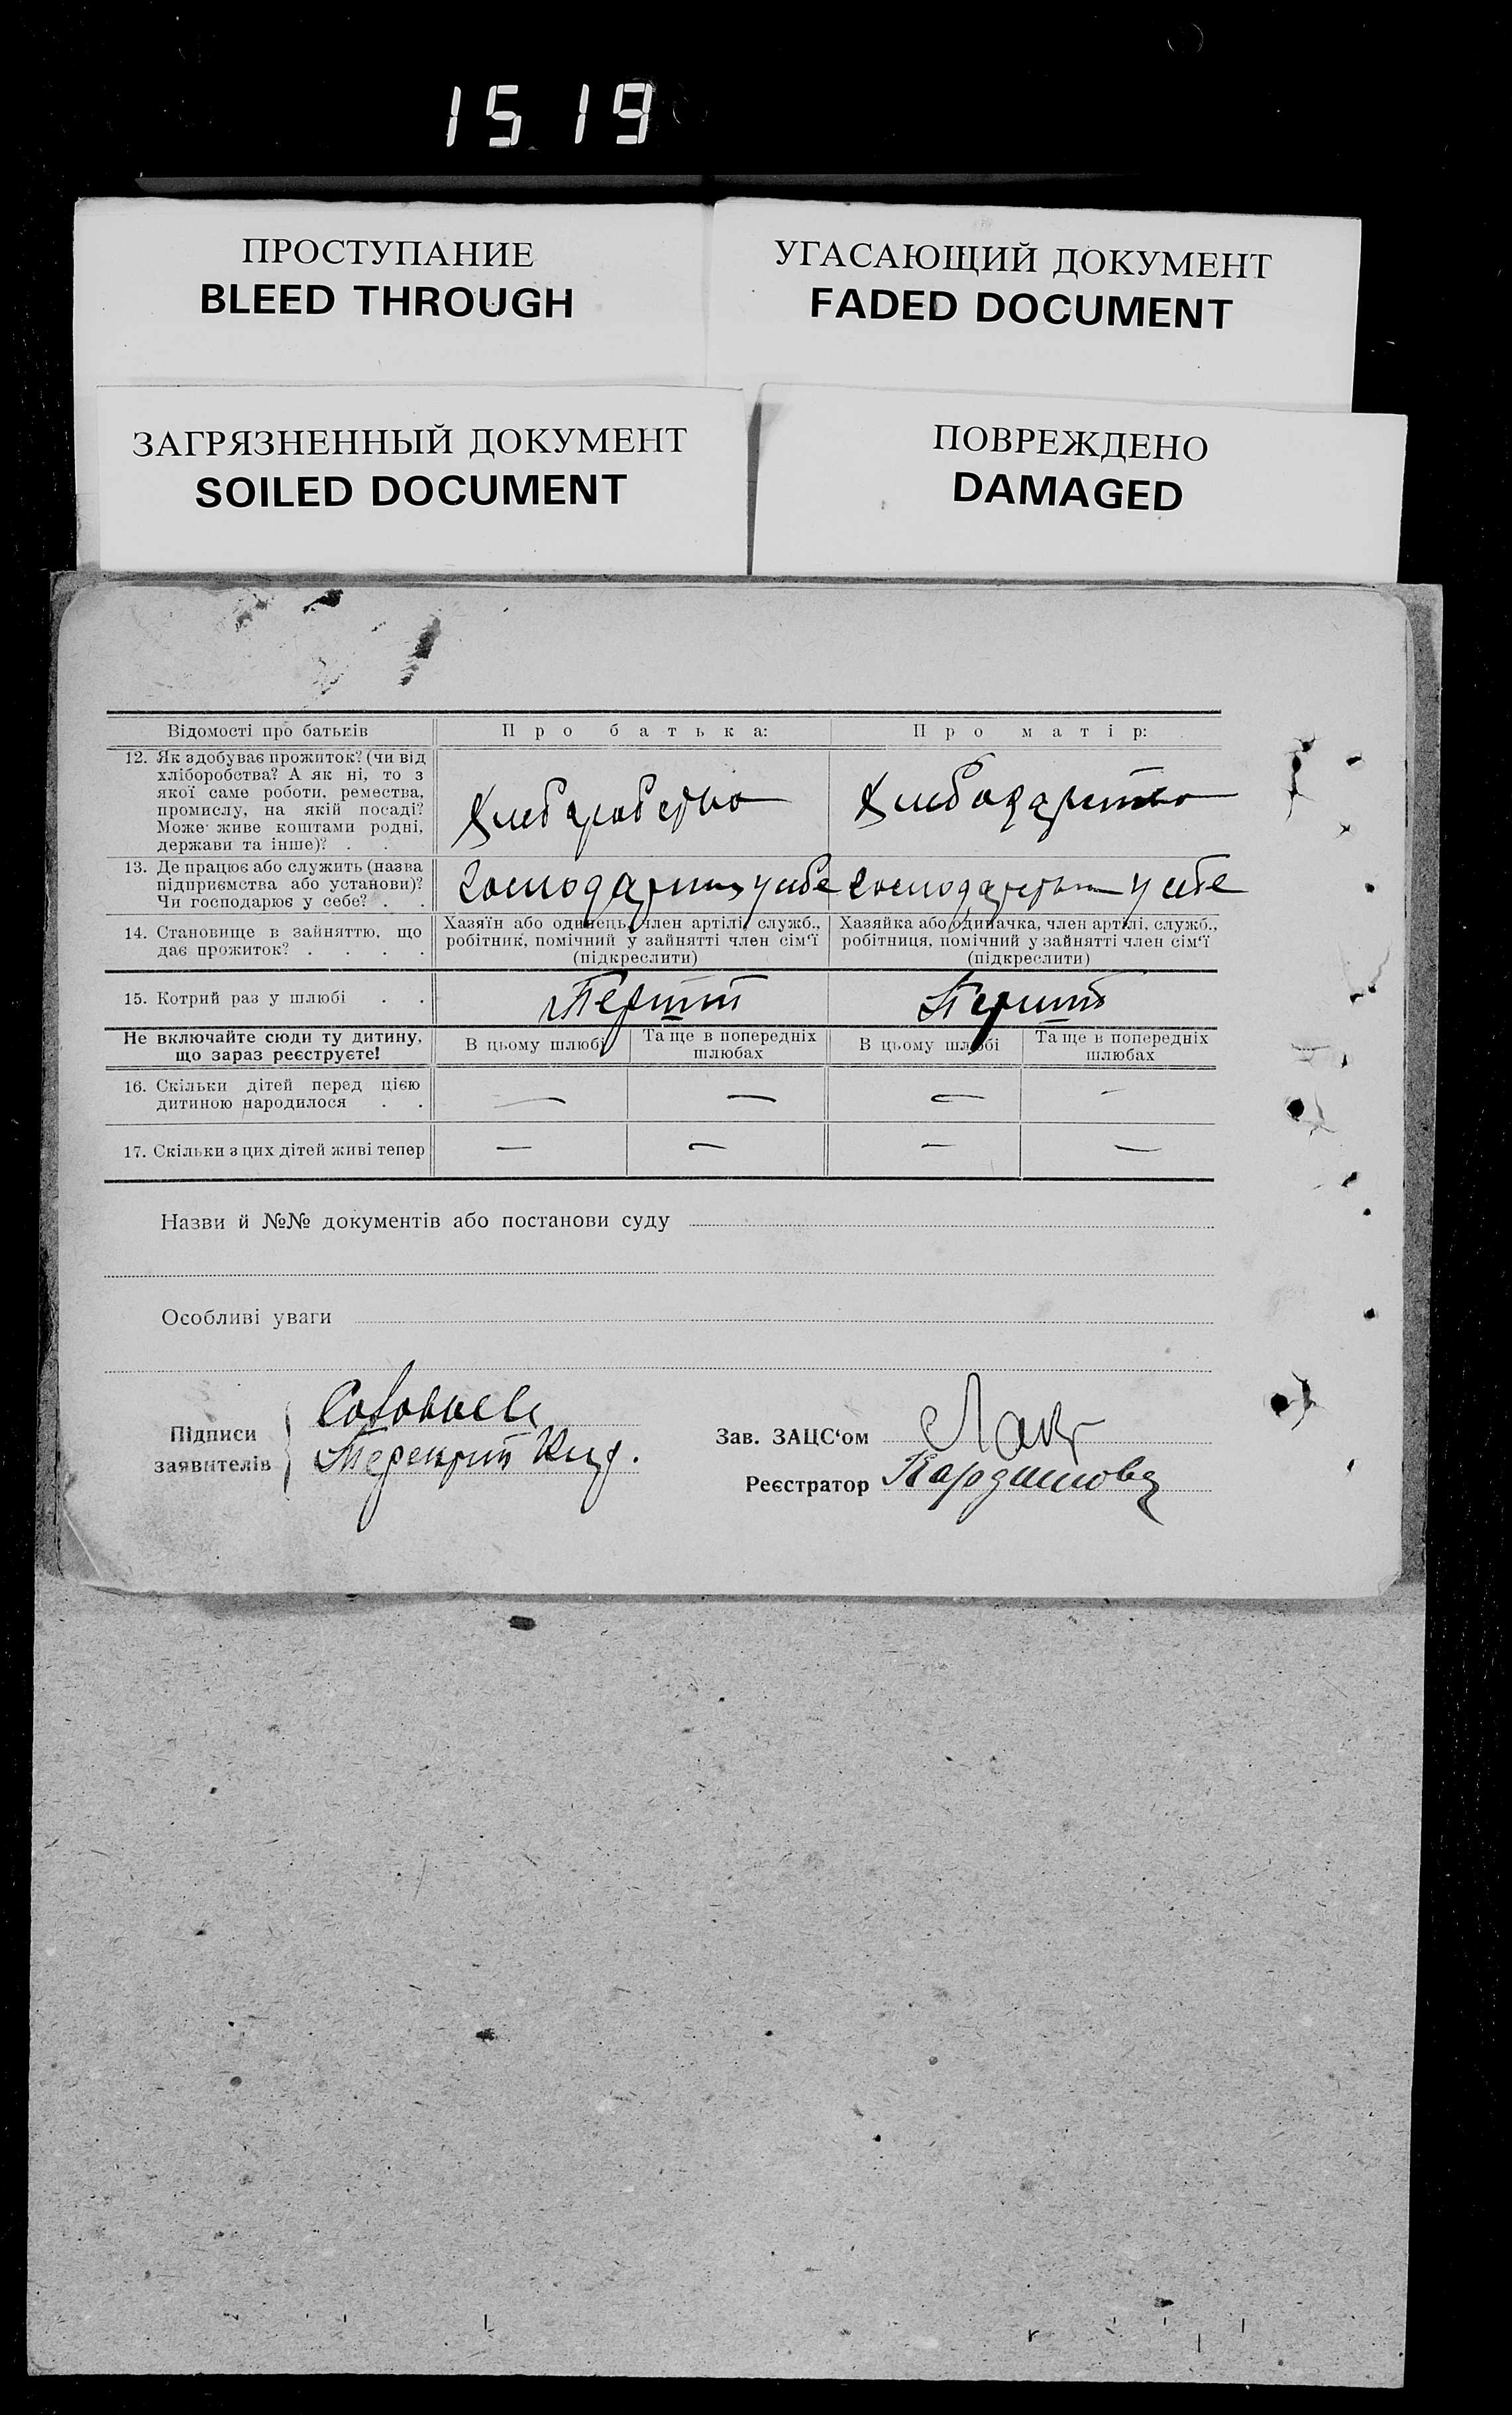 15 19
ПРОСТУПАНИЕ
BLEED THROUGH
УГАСАЮЩИЙ ДОКУМЕНТ
FADED DOCUMENT
ЗАГРЯЗНЕННЫЙ ДОКУМЕНТ
SOILED DOCUMENT
ПОВРЕЖДЕНО
DAMAGED
Відомості про батьків
Про батька:
Про матір:
12. Як здобуває прожиток? (чи від
хліборобства? А як ні, то з
якої саме роботи, ремества,
промислу, на якій посаді?
Може живе коштами родні,
держави та інше)? . .
13. Де працює або служить (назва
підприємства або установи)?
Чи господарює у себе? . .
у себе
у себе
14. Становище в зайняттю, що
дає прожиток? . . . .
Хазяїн або одинець, член артілі, служб.,
робітник, помічний у зайнятті член сім‘ї
(підкреслити)
Хазяйка або одиначка, член артілі, служб.,
робітниця, помічний у зайнятті член сім‘ї
(підкреслити)
15. Котрий раз у шлюбі . .
Не включайте сюди ту дитину,
що зараз реєструєте!
В цьому шлюбі
Та ще в попередніх
шлюбах
В цьому шлюбі
Та ще в попередніх
шлюбах
16. Скільки дітей перед цією
дитиною народилося . .
— — — —
17. Скільки з цих дітей живі тепер
— — — —
Назви й №№ документів або постанови суду
Особливі уваги
Підписи
заявителів
Зав. ЗАЦС‘ом
Реєстратор